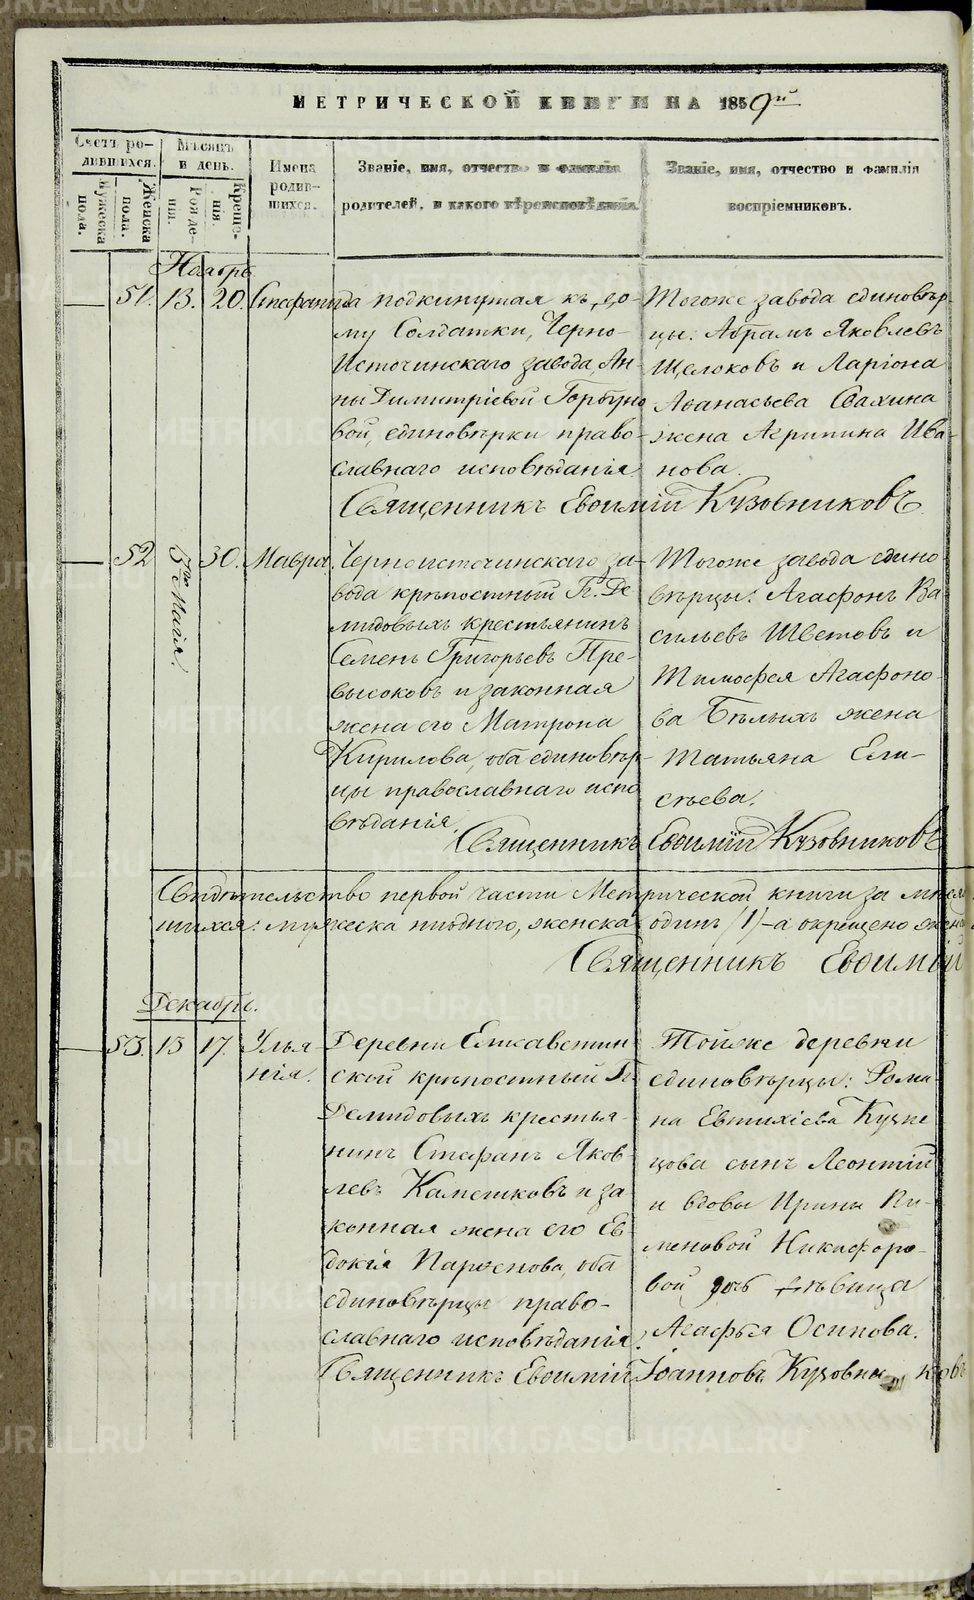 МЕТРИЧЕСКОЙ КНИГИ НА 1859й
Счетъ ро-
дившихся.
Мѣсяцъ
и день.
Имена
родив-
шихся.
Званіе, имя, отчество и фамилія
родителей, и какого вѣроисповѣданія.
Званіе, имя, отчество и фамилія
воспріемниковъ.
Мужеска
пола.
Женска
пола.
Рожде-
нія.
Креще-
нія.
Ноябрь.
51. 13. 20. Стефанида
подкинутая къ до-
му Солдатки, Черно-
Источинскаго завода, Ан-
ны Димитріевой Горбуно
вой, единовѣрки право-
славнаго исповѣданія
Тогоже завода единовѣр-
цы: Абрамъ Яковлевъ
Щелоковъ и Ларіона
Аѳанасьева Свахина
жена Агрипина Ива-
нова.
Священникъ Евѳимій Кузовниковъ
52 5го Магія. 30. Мавра.
Черноисточинскаго за-
вода крѣпостный Гг. Де
мидовыхъ крестьянинъ
Семенъ Григорьевъ Пре-
высоковъ и законная
жена его Матрона
Кирилова, оба единовѣр-
цы православнаго испо
вѣданія.
Тогоже завода едино-
вѣрцы: Агафонъ Ва-
сильевъ Шветовъ и
Тимофея Агафоно-
ва Бѣлыхъ жена
Татьяна Ели-
сѣева.
Священникъ Евѳимій Кузовниковъ
Свидѣтельство первой части Метрической книги за
шихся: мужеска ниодного, женска одинъ /1/-а окрещено
Священникъ Евѳимій
Декабрь.
53. 13 17. Улья-
нія.
Деревни Елисаветин
ской крѣпостный Гг
Демидовыхъ крестья-
нинъ Стефанъ Яков-
левъ Каметковъ и за
конная жена его Ев
докія Парѳенова, оба
единовѣрцы право-
славнаго исповѣданія.
Тойже деревни
единовѣрцы: Рома-
на Евтихіева Кузне
цова сынъ Леонтій
и вдовы Ирины Пи-
меновой Никифоро-
вой дочь дѣвица
Агафья Осипова.
Священникъ Евѳимій Іоанновъ Кузовниковъ
METRIKI.GASO-URAL.RU